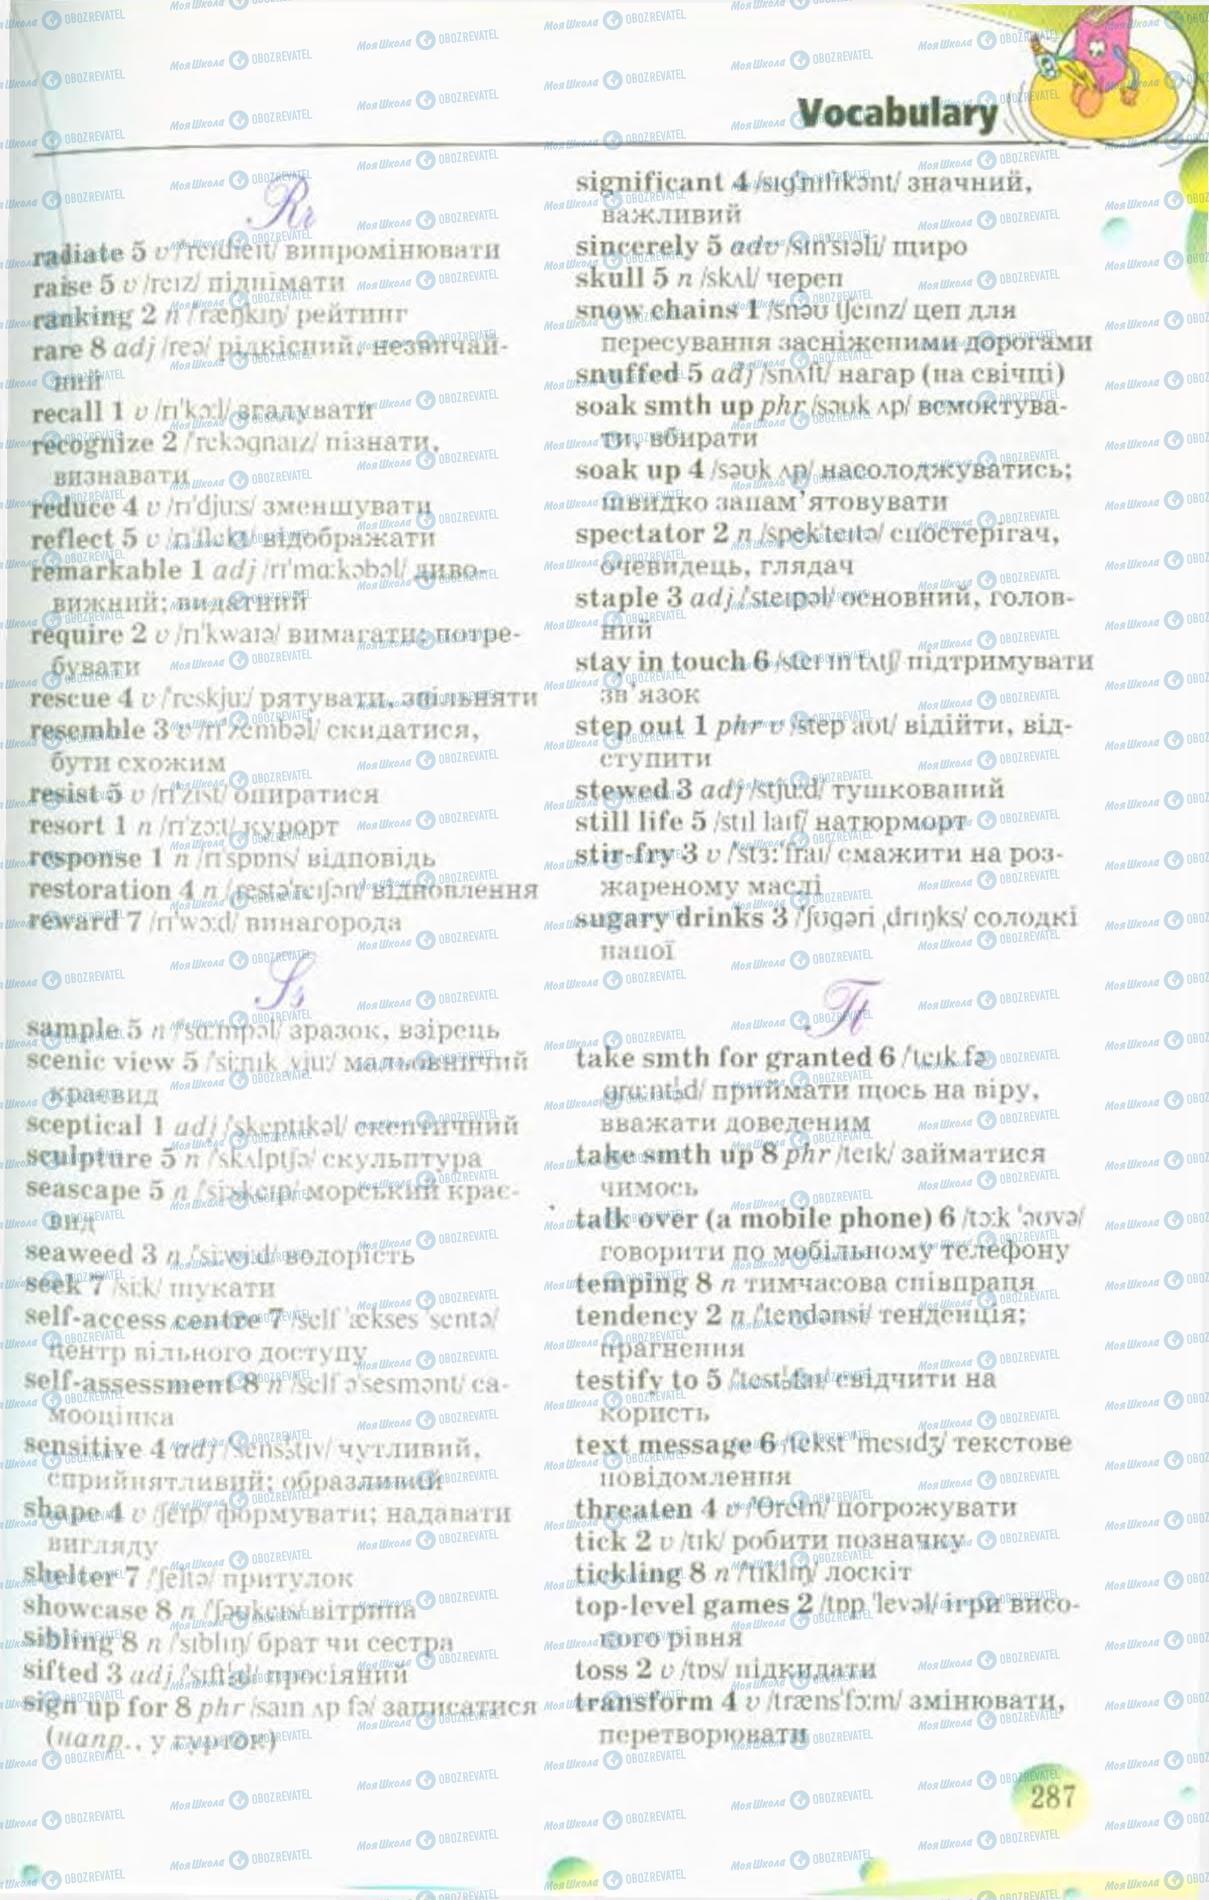 Vocabulary
Rr
radiate 5 v /'reɪdieɪt/ випромінювати
raise 5 v /reɪz/ піднімати
ranking 2 n /'ræŋkɪŋ/ рейтинг
rare 8 adj /reə/ рідкісний, незвичай-
ний
recall 1 v /rɪ'kɔ:l/ згадувати
recognize 2 /'rekəgnaɪz/ пізнати,
визнавати
reduce 4 v /rɪ'dju:s/ зменшувати
reflect 5 v /rɪ'flekt/ відображати
remarkable 1 adj /rɪ'mɑ:kəbəl/ диво-
вижний; видатний
require 2 v /rɪ'kwaɪə/ вимагати; потре-
бувати
rescue 4 v /'reskju:/ рятувати, звільняти
resemble 3 v /rɪ'zembəl/ скидатися,
бути схожим
resist 5 v /rɪ'zɪst/ опиратися
resort 1 n /rɪ'zɔ:t/ курорт
response 1 n /rɪ'spɒns/ відповідь
restoration 4 n /ˌrestə'reɪʃən/ відновлення
reward 7 /rɪ'wɔ:d/ винагорода
Ss
sample 5 n /'sɑ:mpəl/ зразок, взірець
scenic view 5 /'si:nɪk vju:/ мальовничий
краєвид
sceptical 1 adj /'skeptɪkəl/ скептичний
sculpture 5 n /'skʌlptʃə/ скульптура
seascape 5 n /'si:skeɪp/ морський крає-
вид
seaweed 3 n /'si:wi:d/ водорість
seek 7 /si:k/ шукати
self-access centre 7 /self 'ækses 'sentə/
центр вільного доступу
self-assessment 8 n /self ə'sesmənt/ са-
мооцінка
sensitive 4 adj /'sensɪtɪv/ чутливий,
сприйнятливий; образливий
shape 4 v /ʃeɪp/ формувати; надавати
вигляду
shelter 7 /'ʃeltə/ притулок
showcase 8 n /'ʃəʊkeɪs/ вітрина
sibling 8 n /'sɪblɪŋ/ брат чи сестра
sifted 3 adj /'sɪftɪd/ просіяний
sign up for 8 phr /saɪn ʌp fə/ записатися
(напр., у гурток)
significant 4 /sɪg'nɪfɪkənt/ значний,
важливий
sincerely 5 adv /sɪn'sɪəli/ щиро
skull 5 n /skʌl/ череп
snow chains 1 /snəʊ tʃeɪnz/ цеп для
пересування засніженими дорогами
snuffed 5 adj /snʌft/ нагар (на свічці)
soak smth up phr /səʊk ʌp/ всмоктува-
ти, вбирати
soak up 4 /səʊk ʌp/ насолоджуватись;
швидко запам'ятовувати
spectator 2 n /spek'teɪtə/ спостерігач,
очевидець, глядач
staple 3 adj /'steɪpəl/ основний, голов-
ний
stay in touch 6 /steɪ ɪn tʌtʃ/ підтримувати
зв'язок
step out 1 phr v /step aʊt/ відійти, від-
ступити
stewed 3 adj /stju:d/ тушкований
still life 5 /stɪl laɪf/ натюрморт
stir-fry 3 v /'stɜ:'fraɪ/ смажити на роз-
жареному маслі
sugary drinks 3 /'ʃʊgəri ˌdrɪŋks/ солодкі
напої
Tt
take smth for granted 6 /'teɪk fə
ˌgrɑ:ntɪd/ приймати щось на віру,
вважати доведеним
take smth up 8 phr /teɪk/ займатися
чимось
talk over (a mobile phone) 6 /tɔ:k 'əʊvə/
говорити по мобільному телефону
temping 8 n тимчасова співпраця
tendency 2 n /'tendənsi/ тенденція;
прагнення
testify to 5 /'testɪfaɪ/ свідчити на
користь
text message 6 /tekst 'mesɪdʒ/ текстове
повідомлення
threaten 4 v /'θretn/ погрожувати
tick 2 v /tɪk/ робити позначку
tickling 8 n /'tɪklɪŋ/ лоскіт
top-level games 2 /tɒp 'levəl/ ігри висо-
кого рівня
toss 2 v /tɒs/ підкидати
transform 4 v /træns'fɔ:m/ змінювати,
перетворювати
287